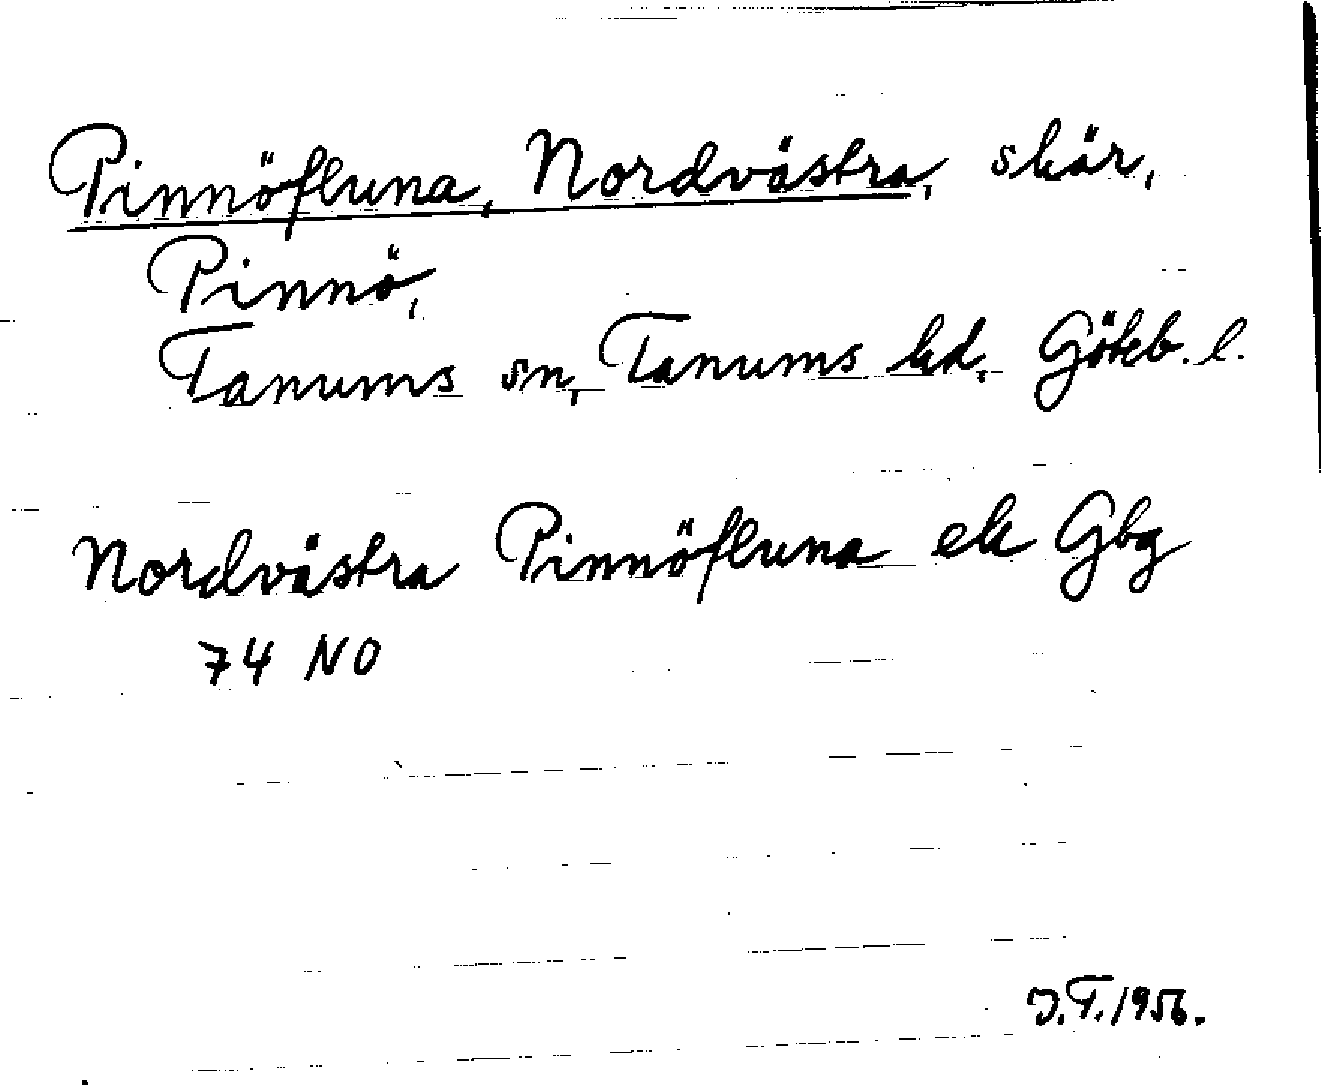 Pinnöfluna, Nordvästra, skär,
Pinnö,
Tanums sn, Tanums hd, Göteb. l.
Nordvästra Pinnöfluna ek Gbg
74 NO
J.T. 1956.